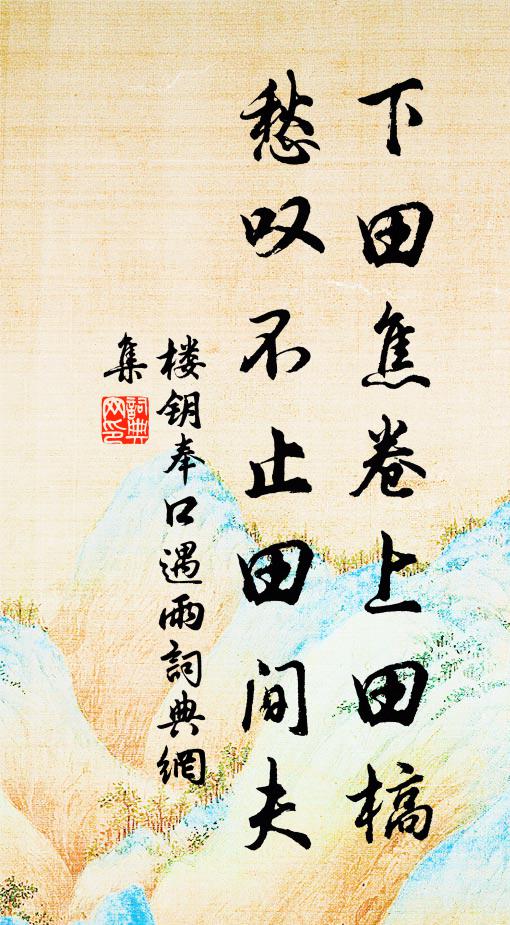 下田焦卷上田槁
愁叹不止田间夫
楼钥奉口遇雨詞典網
集
詞典
网印